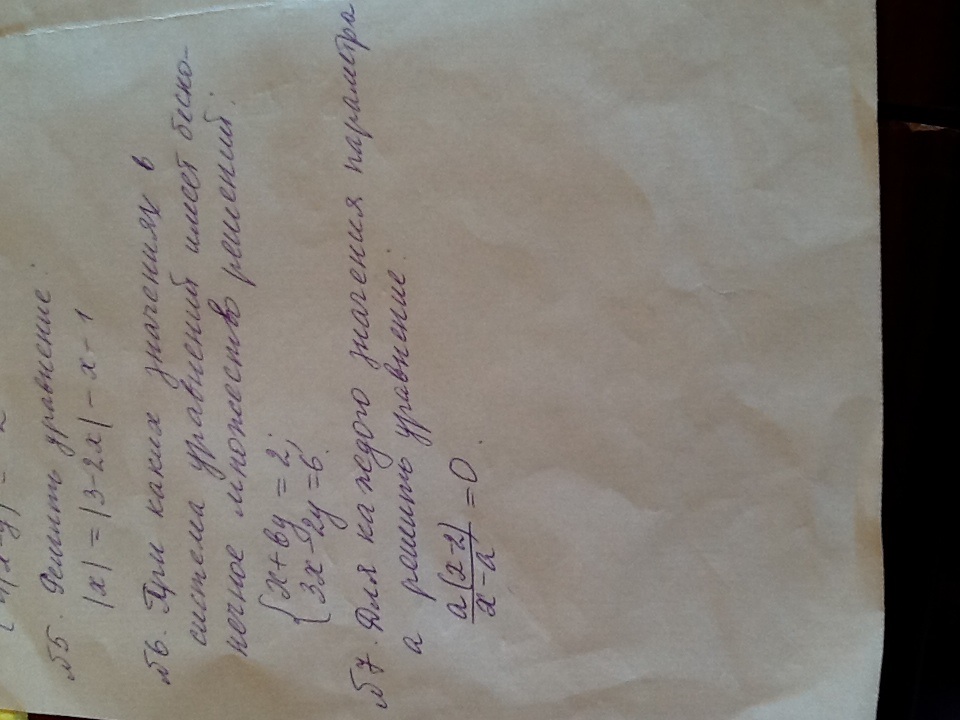 №5. Решить уравнение:
|x| = |3-2x| - x - 1
№6. При каких значениях в
система уравнений имеет беско-
нечное множество решений:
{ x + by = 2;
3x - 2y = 6.
№7. Для каждого значения параметра
a решить уравнение:
a(x-2)/x-a = 0.